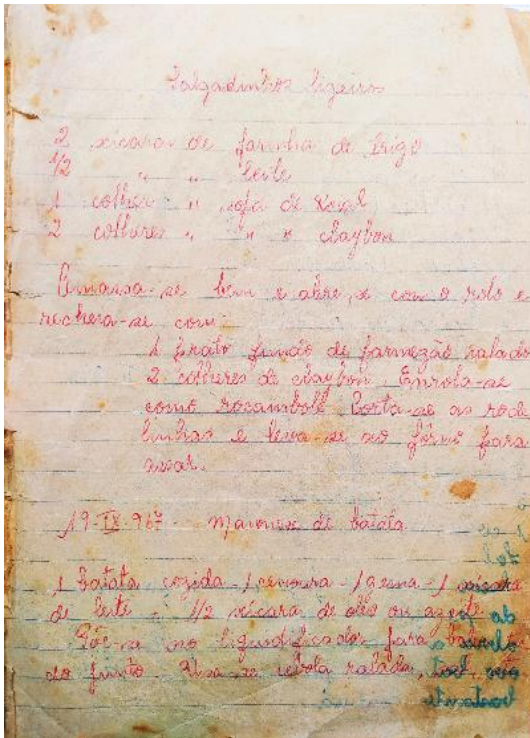 Salgadinhos ligeiros
2 xicaras de farinha de trigo
1/2 " " leite
1 colher " sopa de Royal
2 colheres " " " claybon
Amassa-se bem e abre-se com o rolo e
recheia-se com:
1 prato fundo de parmezão ralado
2 colheres de claybon Enrola-se
como rocambole Corta-se as rode
linhas e leva-se ao fôrno para
assar.
19-IX-967 - Maionese de batata
1 batata cozida - 1 cenoura - 1 gema - 1 xicara
de leite - 1/2 xicara de oleo ou azeite
Põe-se no liquidificador para bater
do junto. Usa-se cebola ralada,